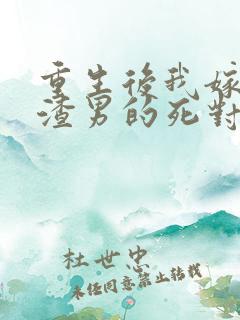 重生後我嫁
渣男的死對
杜世忠
未經同意禁止轉載